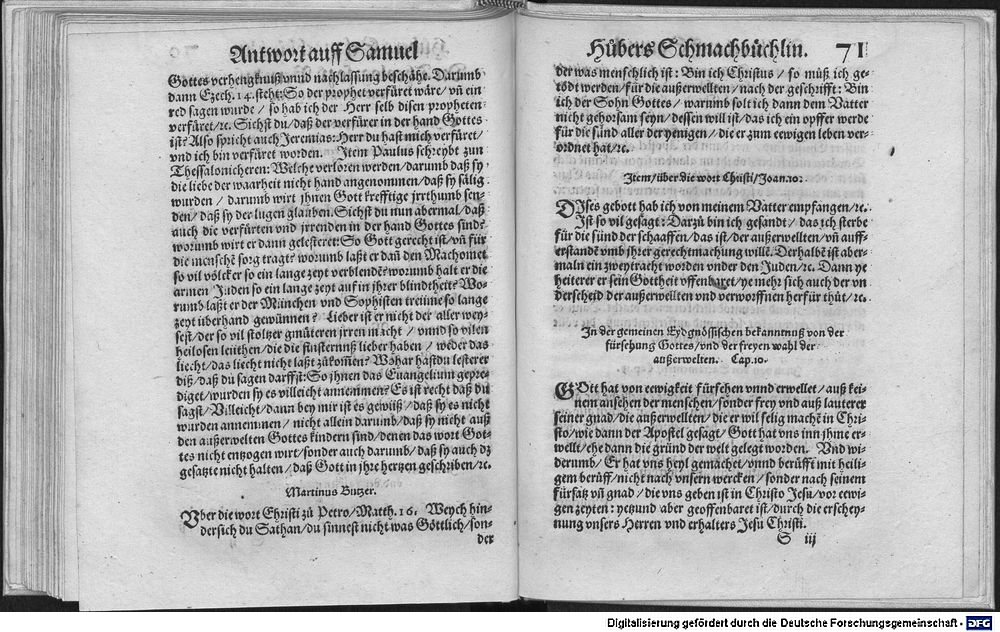 Antwort auff Samuel
Gottes verhengknuß vnnd nachlassung beschähe. Darumb
dann Ezech. 14. steht: So der prophet verfüret wäre / vn̄ ein
red sagen wurde / so hab ich der Herr selb disen propheten
verfüret / ꝛc. Sichst du / daß der verfürer in der hand Gottes
ist? Also spricht auch Jeremias: Herr du hast mich verfüret /
vnd ich bin verfüret worden. Item Paulus schreybt zun
Thessalonicheren: Welche verloren werden / darumb daß sy
die liebe der waarheit nicht hand angenommen / daß sy sälig
wurden / darumb wirt jhnen Gott krefftige jrrthumb sen-
den / daß sy der lugen glauben. Sichst du nun abermal / daß
auch die verfürten vnd jrrenden in der hand Gottes sind?
worumb wirt er dann gelesteret: So Gott gerecht ist / vn̄ für
die menschē sorg tragt? worumb laßt er dan̄ den Machomet
so vil völcker so ein lange zeyt verblendē? worumb halt er die
armen Juden so ein lange zeyt auf in jhrer blindtheit? Wo-
rumb laßt er der München vnd Sophisten treüme so lange
zeyt überhand gewünnen? Lieber ist er nicht der aller wey-
sest / der so vil stoltzer gmüteren jrren macht / vnnd so vilen
heilosen leüthen / die die finsternuß lieber haben / weder das
liecht / das liecht nicht laßt zůkom̄en? Wohar hastdu lesterer
diß / daß du sagen darffst: So jhnen das Euangelium gepre-
diget / wurden sy es villeicht annemmen? Es ist recht daß du
sagst / Villeicht / dann bey mir ist es gewüß / daß sy es nicht
wurden annemmen / nicht allein darumb / daß sy nicht auß
den außerwelten Gottes kindern sind / denen das wort Got-
tes nicht entzogen wirt / sonder auch darumb / daß sy auch dz
gesatzte nicht halten / daß Gott in jhre hertzen geschriben / ꝛc.
Martinus Butzer.
Vber die wort Christi zů Petro / Matth. 16. Weych hin-
dersich du Sathan / du sinnest nicht was Göttlich / son-
der
Hůbers Schmachbůchlin. 71
der was menschlich ist: Bin ich Christus / so můß ich ge-
tödt werden / für die außerwellten / nach der geschrifft: Bin
ich der Sohn Gottes / warumb solt ich dann dem Vatter
nicht gehorsam seyn / dessen will ist / das ich ein opffer werde
für die sünd aller deryenigen / die er zum eewigen leben ver-
ordnet hat / ꝛc.
Item / über die wort Christi / Joan. 10.
DIses gebott hab ich von meinem Vatter empfangen / ꝛc.
Ist so vil gesagt: Darzů bin ich gesandt / das ich sterbe
für die sünd der schaaffen / das ist / der außerwellten / vn̄ auff-
erstandē vmb jhrer gerechtmachung willē. Derhalbē ist aber-
maln ein zweytracht worden vnder den Juden / ꝛc. Dann ye
heiterer er sein Gottheit offenbaret / ye mehr sich auch der vn-
derscheid der außerwellten vnd verworffnen herfür thůt / ꝛc.
In der gemeinen Eydgnössischen bekanntnuß von der
fürsehung Gottes / vnd der freyen wahl der
außerwelten. Cap. 10.
GOtt hat von eewigkeit fürsehen vnnd erwellet / auß kei-
nem ansehen der menschen / sonder frey vnd auß lauterer
seiner gnad / die außerwellten / die er wil selig machē in Chri-
sto / wie dann der Apostel gesagt / Gott hat vns inn jhme er-
wellt / ehe dann die gründ der welt gelegt worden. Vnd wi-
derumb / Er hat vns heyl gemachet / vnnd berüfft mit heili-
gem berüff / nicht nach vnsern wercken / sonder nach seinem
fürsatz vn̄ gnad / die vns geben ist in Christo Jesu / vor eewi-
gen zeyten: yetzund aber geoffenbaret ist / durch die erschey-
nung vnsers Herren vnd erhalters Jesu Christi.
S iij
Digitalisierung gefördert durch die Deutsche Forschungsgemeinschaft - DFG